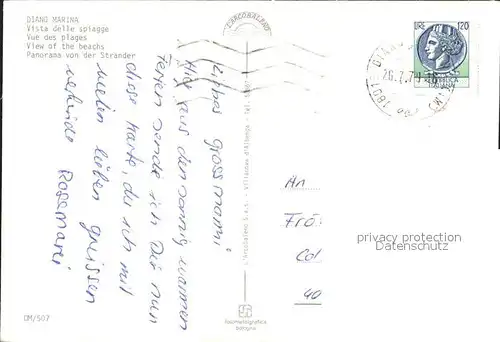 DIANO MARINA
Vista delle spiagge
Vue des plages
View of the beachs
Panorama von der Strander
CAMPOBALENO
LIRE 120
REPUBBLICA
ITALIANA
DIANO
26.7.79
Liebes Grossmami
aus den sonnig warmen
Ferien sende ich Dir nun
diese Karte, du ich mit
vielen lieben grüssen
Rosemarei
L'Arcobaleno s.a.s. - Villanova d'Albenga - Tel.
An
Frö
Col
40
privacy protection
Datenschutz
Rotocalcografica
bologna
DM/507